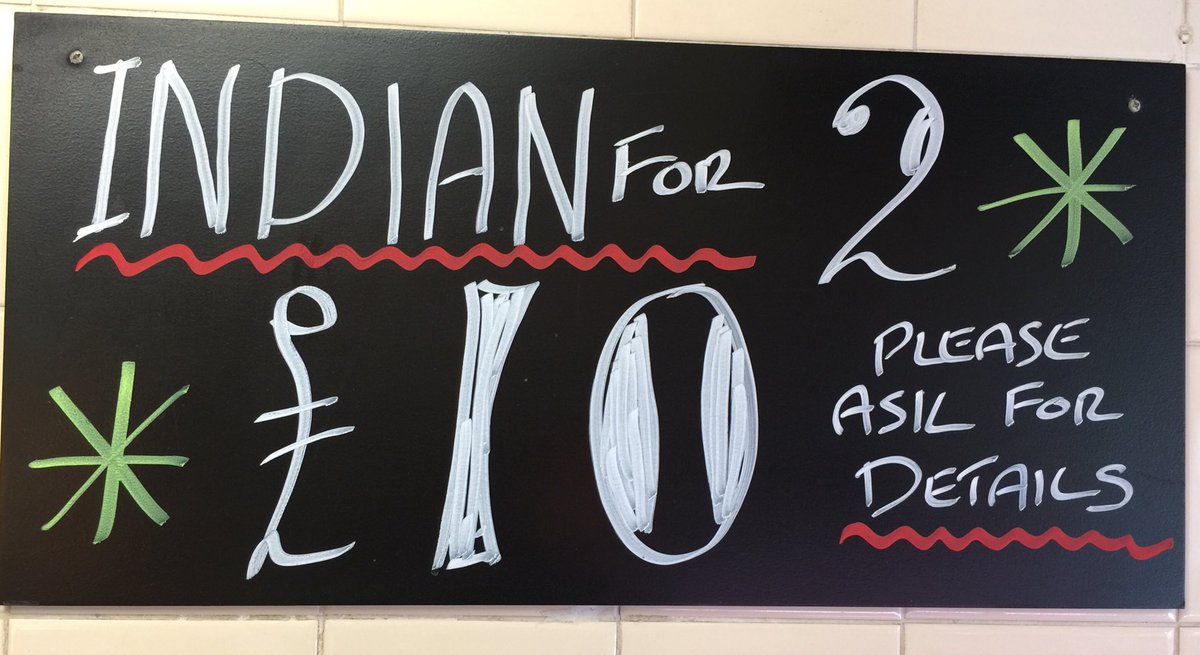 INDIAN FOR 2
£10
PLEASE
ASK FOR
DETAILS